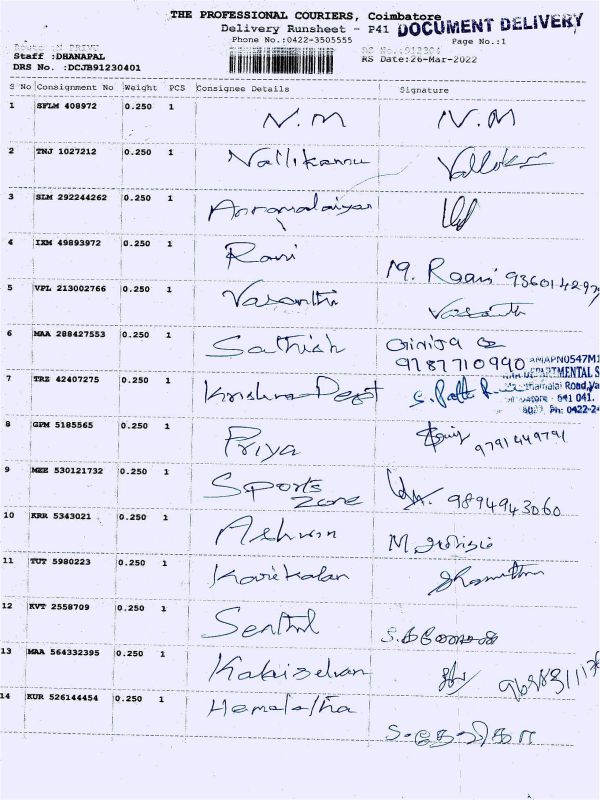 THE PROFESSIONAL COURIERS, Coimbatore
Delivery Runsheet - P41
DOCUMENT DELIVERY
Phone No.:0422-3505555
Page No.:1
Staff :DHANAPAL
RS Date:26-Mar-2022
DRS No. :DCJB91230401
S No Consignment No Weight PCS Consignee Details Signature
1 SFLM 408972 0.250 1 N.M N.M
2 TNJ 1027212 0.250 1 Nallikannu
3 SLM 292244262 0.250 1 Annamalaiyar
4 IXM 49893972 0.250 1 Rani M. Raani
5 VPL 213002766 0.250 1 Vasanthi Vasanth
6 MAA 288427553 0.250 1 Sathish Girija
9787710990
7 TRZ 42407275 0.250 1 Krishna Dept
641 041.
8 GPM 5185565 0.250 1 Priya 9791449791
9 MEE 530121732 0.250 1 Sports
Zone 9894943060
10 KRR 5343021 0.250 1 Ashwin M.
11 TUT 5980223 0.250 1 Karikalan
12 KVT 2558709 0.250 1 Senthil
13 MAA 564332395 0.250 1 Kalaiselvan
14 KUR 526144454 0.250 1 Hemalatha